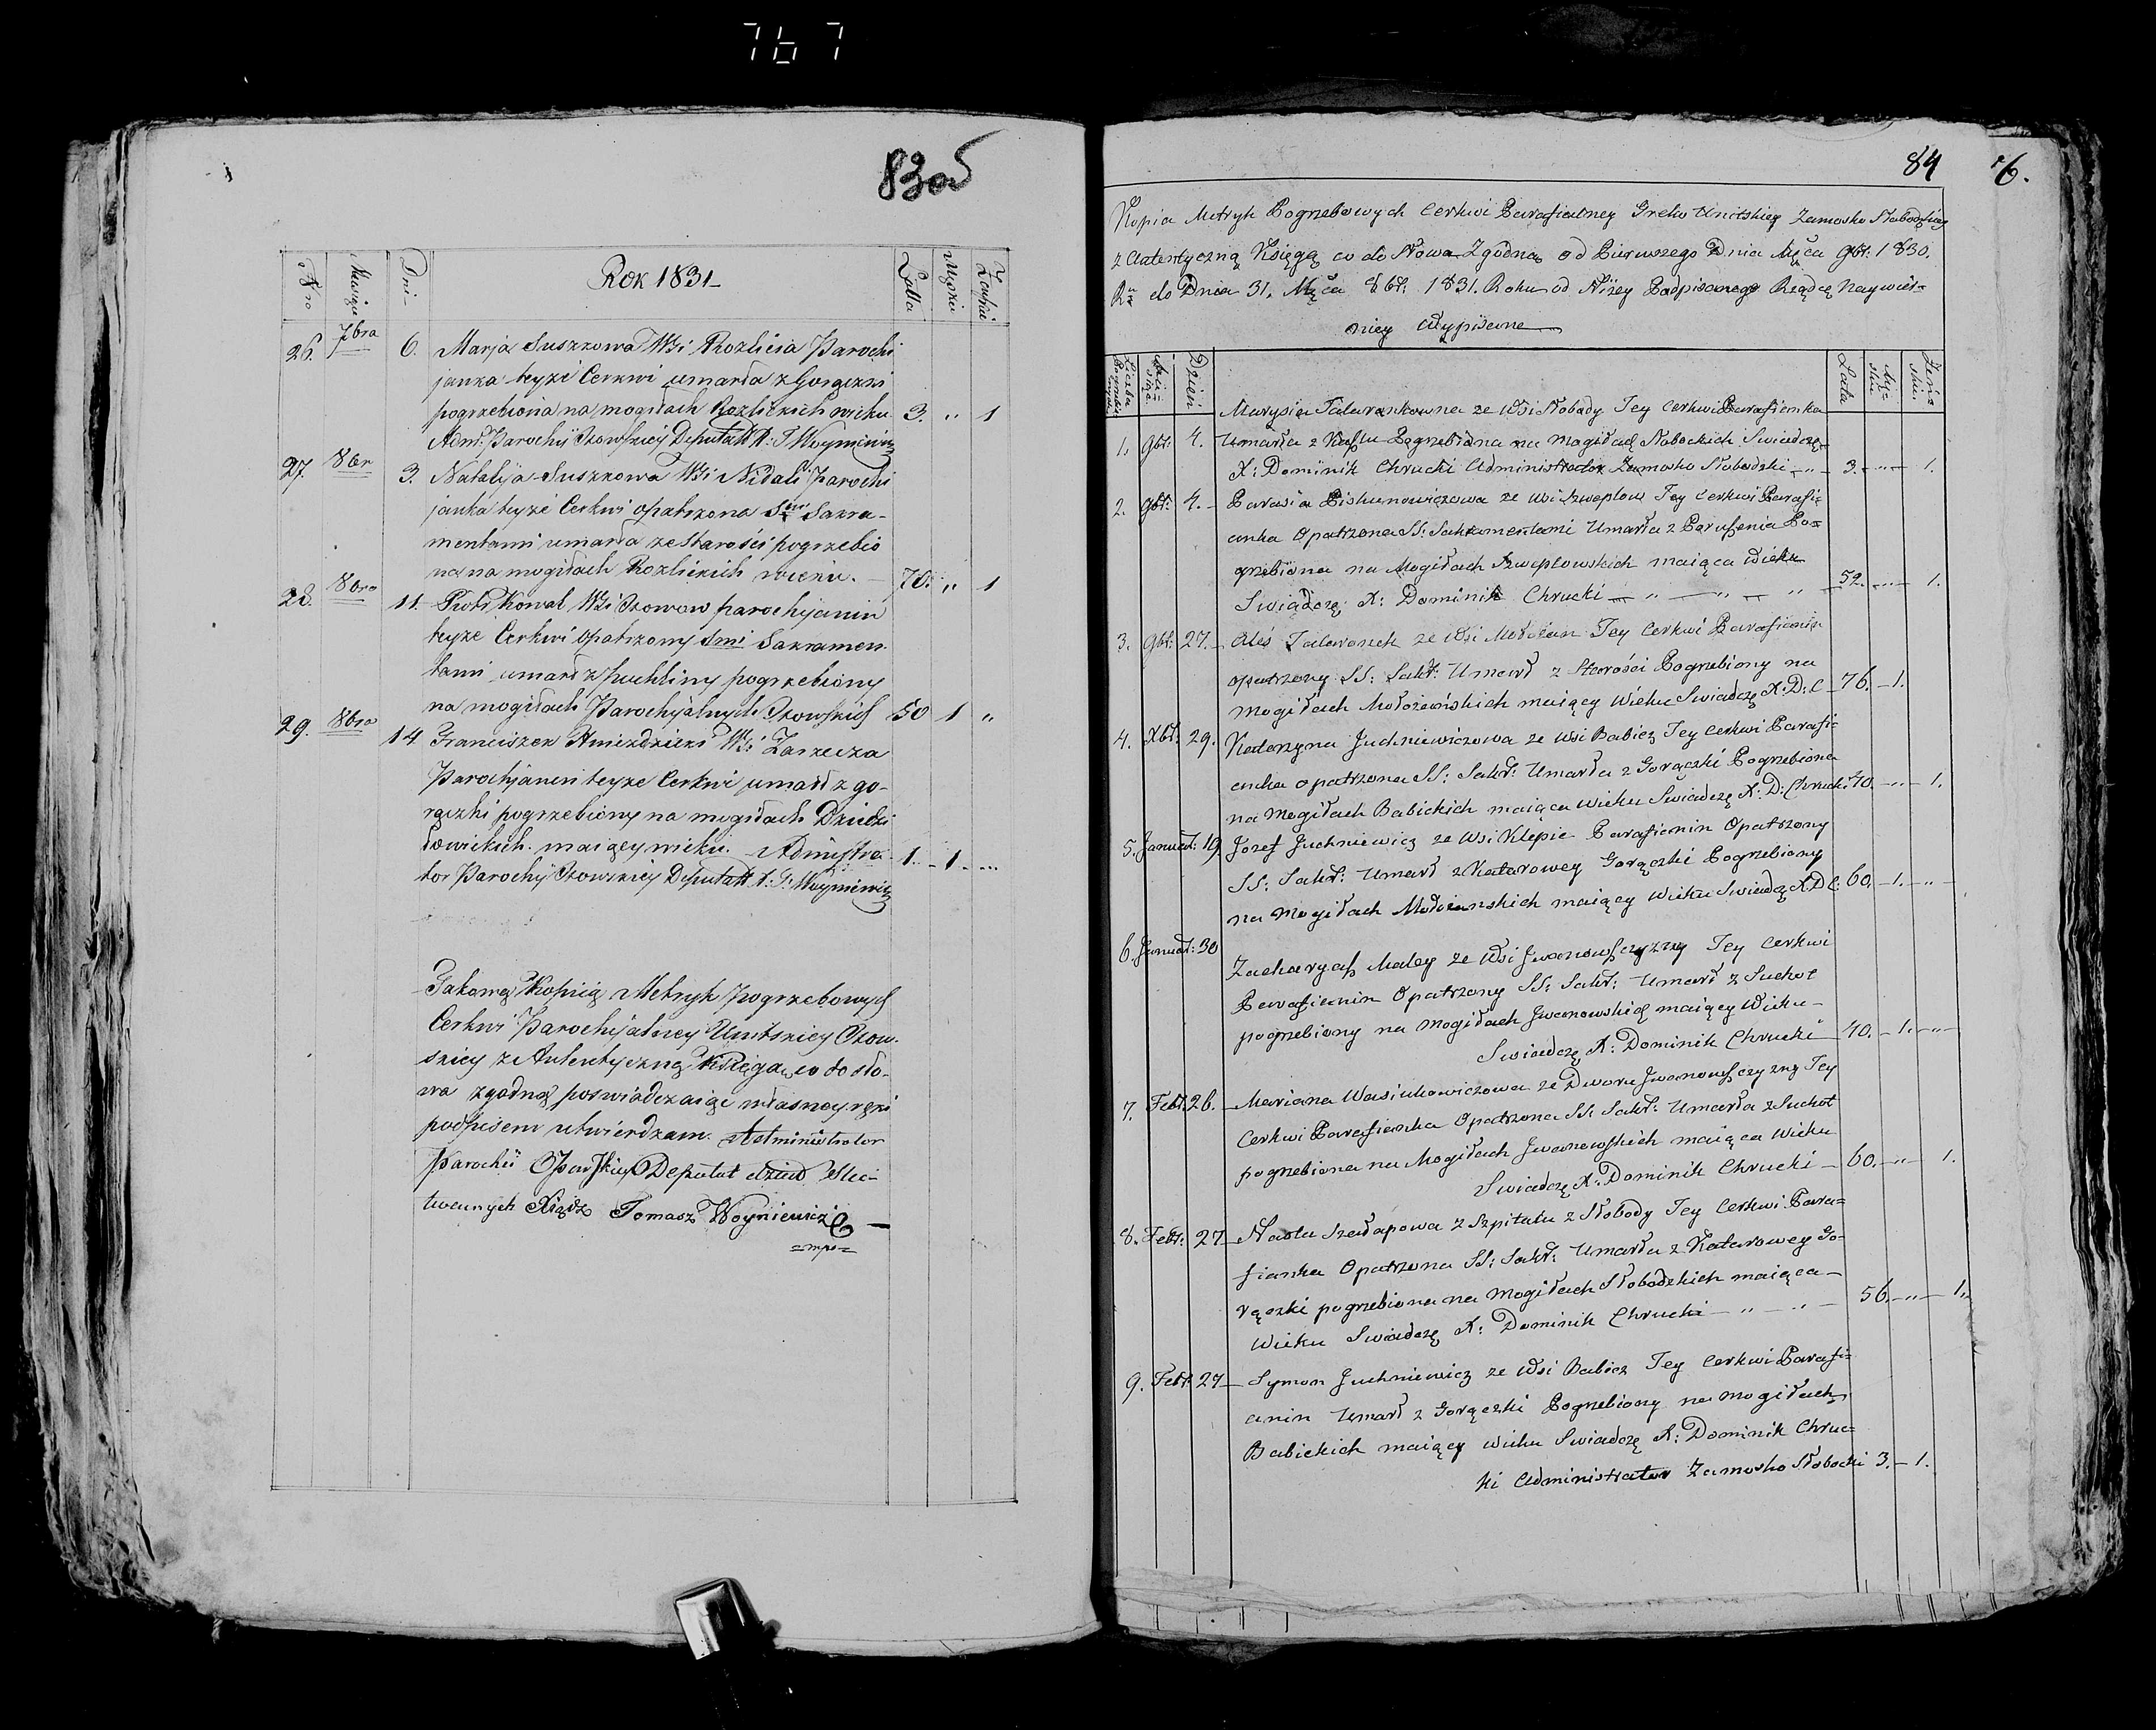 767
83об
Nro Miesiąc Dni Rok 1831 Latta Męski Żeński
26. 7bra 6. Marja Suszkowa Wsi Rozlicia Parochi
janka teyże Cerkwi umarła z Gorączki
pogrzebiona na mogiłach Rozlickich wieku 3. " 1
Adm: Parochij Deputatt X: T Woyniewicz
27. 8br 3. Natalija Suszkowa Wsi Nidali Parochi
janka teyże Cerkwi opatrzona Śmi Sakra-
mentami umarła ze Starości pogrzebio
na na mogiłach Rozlickich wieku. 70. " 1
28. 8bra 11. Piotr Kowal Wsi parochijanin
teyże Cerkwi opatrzony Śmi Sakramen
tami umarł z puchliny pogrzebiony
na mogiłach Parochijalnych 50 1 "
29. 8bra 14 Franciszek Wsi Zarzecza
Parochjanin teyże Cerkwi umarł z go-
rączki pogrzebiony na mogiłach Dziedzi
łowickich. maiący wieku. Administra- 1. 1 "
tor Parochij Deputatt X: T: Woyniewicz
Takową Kopią Metryk pogrzebowych
Cerkwi Parochijalney Unitskiey
skiey z Autentyczną Księgą co do sło-
wa zgodną poswiadczaiąc własney ręki
podpisem utwierdzam. Administrator
Parochii Deputat
Xiądz Tomasz Woyniewicz
mpr
84 6.
Kopia Metryk Pogrzebowych Cerkwi Parafialney Greko Unitskiey Zamosko Słobodzkiey
z Autentyczną Księgą co do Słowa Zgodna od Pierwszego Dnia Mca 9br: 1830.
Ru do Dnia 31. Mca 8br: 1831. Roku od Niżey Podpisanego Rządcę Naywier=
niey Wypisane
Liczba Dzień Lata Mę= skie Żeńs skie
Marysia Talarankowna ze Wsi Słobody Tey Cerkwi Parafianka
1. 9br: 4. Umarła z Kaszlu Pogrzebiona na Mogiłach Słobockich Swiadczę
X: Dominik Chrucki Administrator Zamosko Słobodzki 3. " 1.
2. 9br: 4. Parasia Piskunowiczowa ze Wsi Szweplow Tey Cerkwi Parafi=
anka Opatrzona SS: Sakramentami Umarła z Paruszenia Po=
grzebiona na Mogiłach Szweplowskich maiąca Wieku
Swiadczę X: Dominik Chrucki 52. " 1.
3. 9br: 27. Aleś Talaronek ze Wsi Mołożan Tey Cerkwi Parafianin
opatrzony SS: Sakr: Umarł z Starości Pogrzebiony na
Mogiłach Mołożańskich maiący Wieku Swiadczę X: D: C 76. 1.
4. Xbr: 29. Katerzyna Juchniewiczowa ze Wsi Babicz Tey Cerkwi Parafi=
anka opatrzona SS: Sakr: Umarła z Gorączki Pogrzebiona
na Mogiłach Babickich maiąca Wieku Swiadczę X: D: Chrucki 70. " 1.
5. Januar: 19. Jozef Juchniewicz ze Wsi Klepie Parafianin Opatrzony
SS: Sakr: Umarł z Katarowey Gorączki Pogrzebiony
na Mogiłach maiący Wieku Swiadczę X: D C: 60. 1. "
6. Januar: 30 Zacharyasz Maley ze Wsi Jwanowszczyzny Tey Cerkwi
Parafianin Opatrzony SS: Sakr: Umarł z Suchot
pogrzebiony na Mogiłach Jwanowskich maiący Wieku
Swiadczę X: Dominik Chrucki 40. 1. "
7. Febr: 26. Mariana Wasiukowiczowa ze Dworu Jwanowszczyzny Tey
Cerkwi Parafianka Opatrzona SS: Sakr: Umarła z Suchot
pogrzebiona na Mogiłach Jwanowskich maiąca Wieku
Swiadczę X: Dominik Chrucki 60. " 1.
8. Febr: 27 Nasta z Szpitalu z Słobody Tey Cerkwi Para=
fianka Opatrzona SS: Sakr: Umarła z Katarowey Go=
rączki pogrzebiona na Mogiłach Słobodzkich maiąca
Wieku Swiadczę X: Dominik Chrucki 56. " 1.
9. Febr: 27 Symon Juchniewicz ze Wsi Babicz Tey Cerkwi Parafi=
anin Umarł z Gorączki Pogrzebiony na Mogiłach
Babickich maiący wieku Swiadczę X: Dominik Chruc=
ki Administrator Zamosko Słobocki 3. 1.